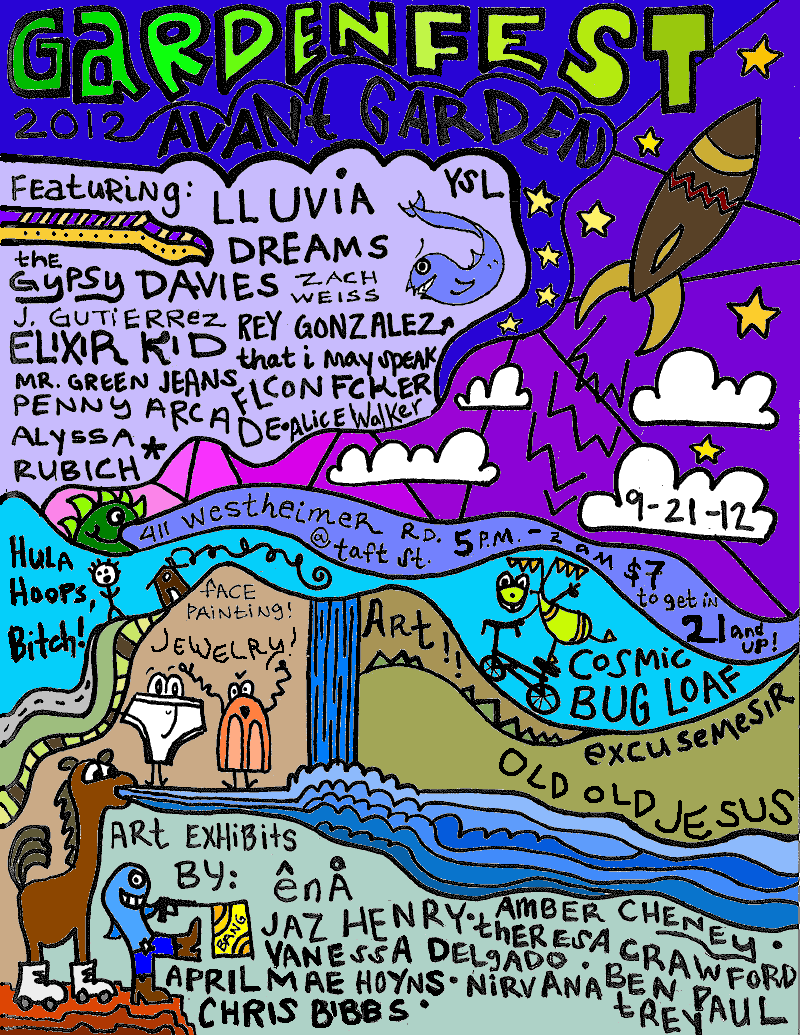 GARDENFEST
2012 AVANT GARDEN
FEATURiNG:
LLUViA
DREAMS
YSL
the
GYPSY DAVIES
ZACH
WEISS
J. GUTiERREZ
REY GONZALEZ
ELIXIR KID
that i may SPEAK
MR. GREEN JEANS
FLCON FCKER
PENNY ARCADE
ALiCE Walker
ALYSSA
RUBICH *
9-21-12
411 Westheimer RD.
@ taft st.
5 P.M. - 2 AM
$7
to get in
21 and UP!
HULA
HOOPS,
Bitch!
fACE
PAINTING!
JEWELRY!
ARt!!
COSMIC
BUG LOAF
excusemesir
OLD OLD JESUS
ARt EXHiBitS
BY:
ênÅ
JAZ HENRY.
AMBER CHENEY.
theRESA CRAWFORD
VANESSA DELGADO.
BANG
APRIL MAE HOYNS.
NiRVANA
BEN PAUL
tREY
CHRIS BIBBS.